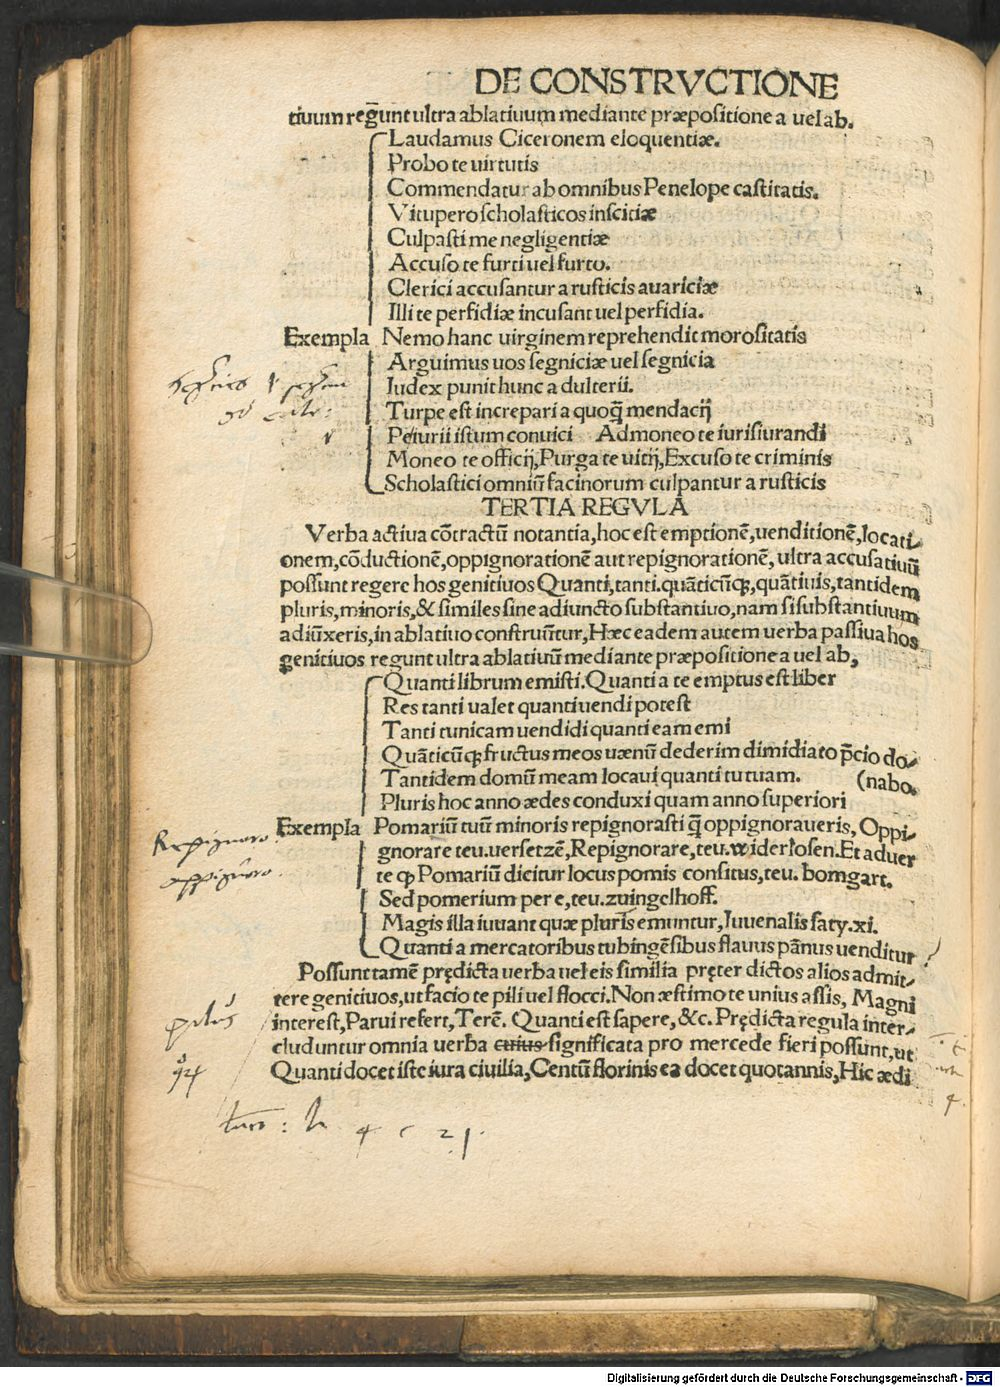 DE CONSTRVCTIONE
tiuum reg̃unt ultra ablatiuum mediante præpositione a uel ab.
Laudamus Ciceronem eloquentiæ.
Probo te uirtutis
Commendatur ab omnibus Penelope castitatis.
Vitupero scholasticos inscitiæ
Culpasti me negligentiæ
Accuso te furti uel furto.
Clerici accusantur a rusticis auariciæ
Illi te perfidiæ incusant uel perfidia.
Exempla Nemo hanc uirginem reprehendit morositatis
Arguimus uos segniciæ uel segnicia
Iudex punit hunc adulterii.
Turpe est increpari a quoq̃ mendacij
Peiurii istum conuici Admoneo te iurisiurandi
Moneo te officij, Purga te uitij, Excuso te criminis
Scholastici omniũ facinorum culpantur a rusticis
TERTIA REGVLA
Verba actiua cõtractũ notantia, hoc est emptionẽ, uenditionẽ, locati-
onem, cõductionẽ, oppignorationẽ aut repignorationẽ, ultra accusatiuũ
possunt regere hos genitiuos Quanti, tanti. quãticũq;, quãtiuis, tantidem
pluris, minoris, & similes sine adiuncto substantiuo, nam si substantiuum
adiũxeris, in ablatiuo construũtur, Hæc eadem autem uerba passiua hos
genitiuos regunt ultra ablatiuũ mediante præpositione a uel ab,
Quanti librum emisti. Quanti a te emptus est liber
Res tanti ualet quanti uendi potest
Tanti tunicam uendidi quanti eam emi
Quãticũq; fructus meos uænũ dederim dimidiato p̃cio do-
Tantidem domũ meam locaui quanti tu tuam. (nabo.
Pluris hoc anno ædes conduxi quam anno superiori
Exempla Pomariũ tuũ minoris repignorasti q̃ oppignoraueris, Oppi-
gnorare teu. uersetzẽ, Repignorare, teu. widerlosen. Et aduer
te ꝙ Pomariũ dicitur locus pomis consitus, teu. bomgart.
Sed pomerium per e, teu. zuingelhoff.
Magis illa iuuant quæ pluris emuntur, Iuuenalis saty. xi.
Quanti a mercatoribus tubingẽsibus flauus pãnus uenditur?
Possunt tamẽ prędicta uerba uel eis similia pręter dictos alios admit-
tere genitiuos, ut facio te pili uel flocci. Non æstimo te unius assis, Magni
interest, Parui refert, Terẽ. Quanti est sapere, &c. Prędicta regula inter-
cluduntur omnia uerba cuius significata pro mercede fieri possunt, ut
Quanti docet iste iura ciuilia, Centũ florinis ea docet quotannis, Hic ædi
Repignoro
oppignoro
pilus
Digitalisierung gefördert durch die Deutsche Forschungsgemeinschaft - DFG